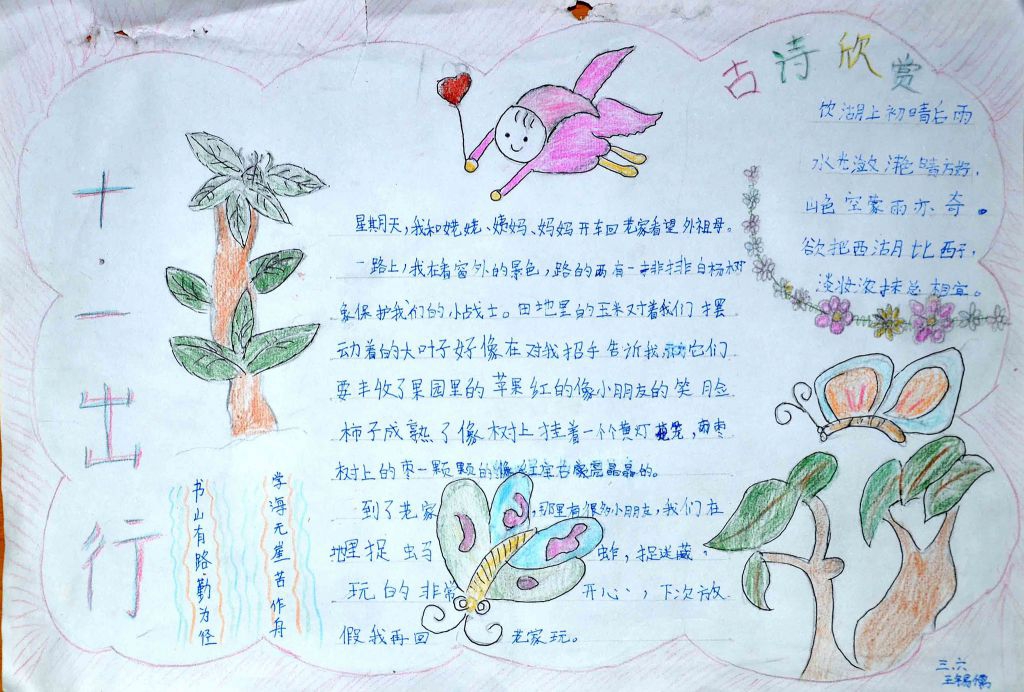 十·一出行
古诗欣赏
饮湖上初晴后雨
水光潋滟晴方好，
山色空蒙雨亦奇。
欲把西湖比西子，
淡妆浓抹总相宜。
星期天，我和姥姥、姨妈、妈妈开车回老家看望外祖母。
一路上，我看着窗外的景色，路的两有一排排白杨树
象保护我们的小战士。田地里的玉米对着我们摆
动着的大叶子好像在对我招手告诉我它们
要丰收了果园里的苹果红的像小朋友的笑脸
柿子成熟了像树上挂着一个个黄灯笼，枣
树上的枣一颗颗的像红宝石晶晶的。
到了老家，那里有很多小朋友，我们在
地里捉蚂蚱，捉迷藏，
玩的非常开心，下次放
假我再回老家玩。
书山有路勤为径
学海无崖苦作舟
三.六